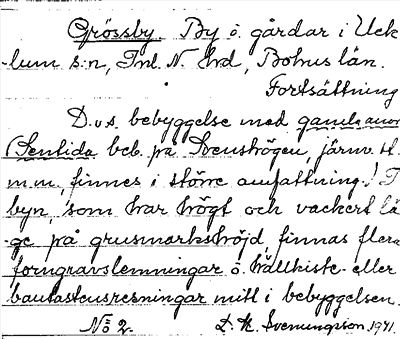 Grössby. By o. gårdar i Uck
lum s:n, Inl. N. hd, Bohus län.
Fortsättning
D.v.s bebyggelse med gamla anor
(Sentida beb. på Svenshögen, järnv. st.
m.m, finnes i större omfattning.) I
byn, som har högt och vackert lä
ge på grusmarkshöjd, finnas flera
forngravslemningar o. hällkiste- eller
bautastensresningar mitt i bebyggelsen.
No 2. Svenungsson 1941.